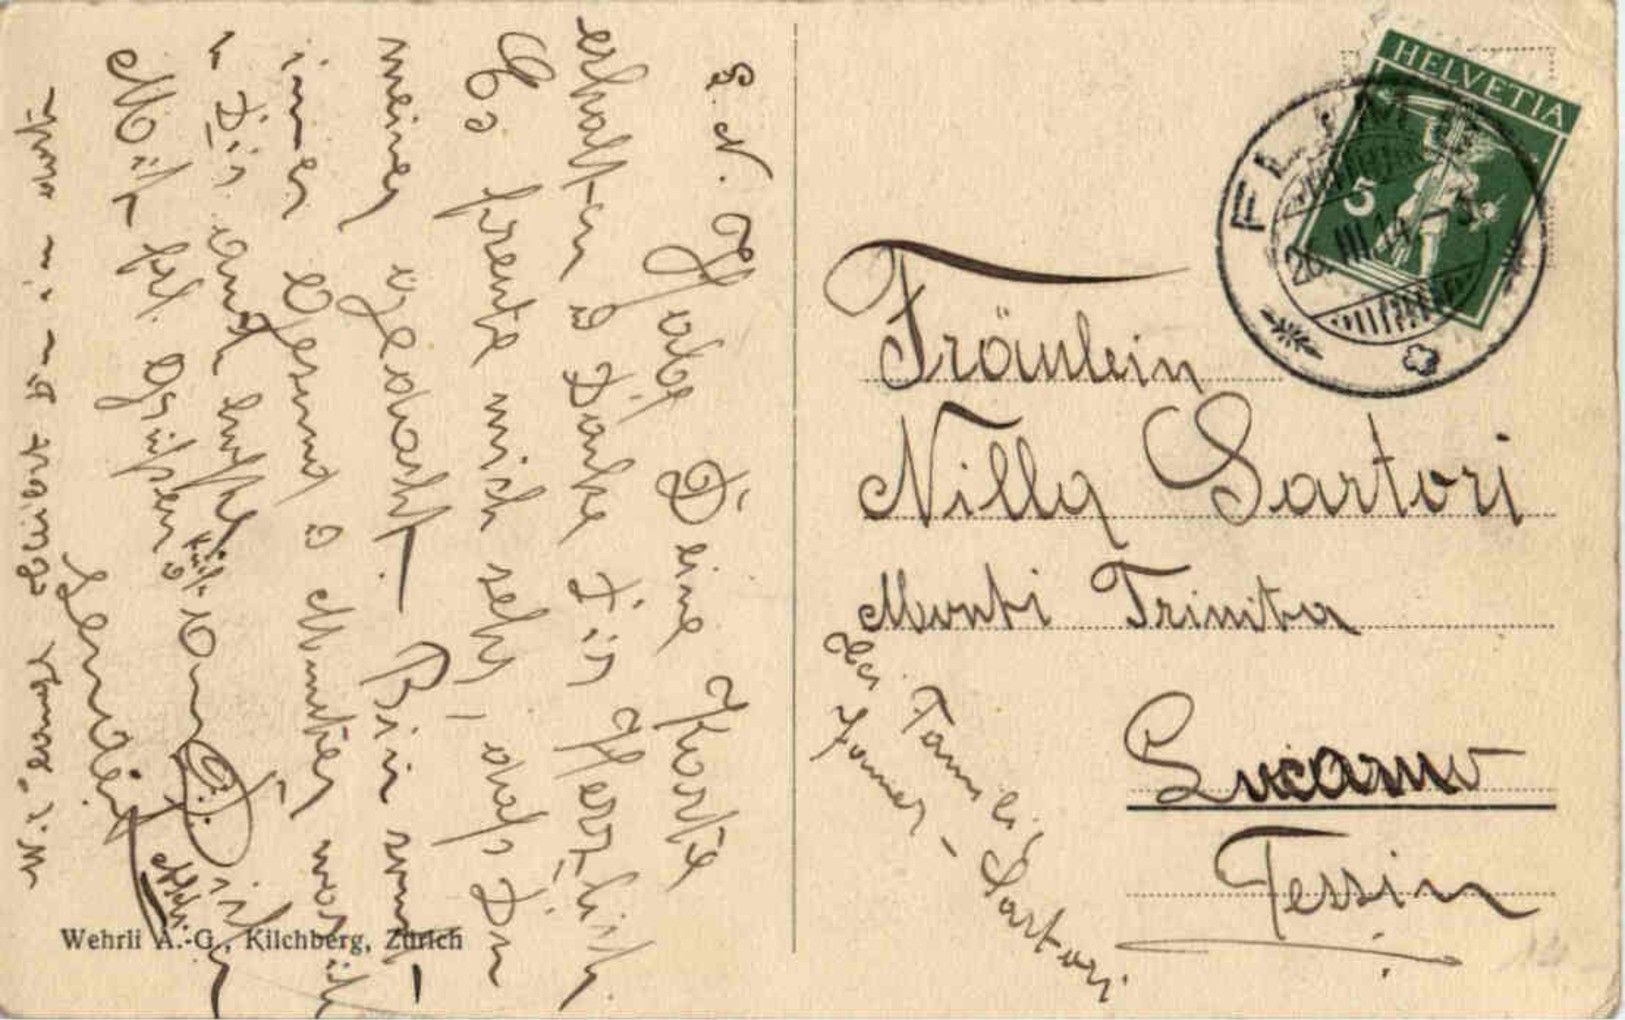 L. N. Habe Deine Karte
erhalten u Danke Dir Herzlich
Es freute mich sehr, dass Du
meiner gedacht. — Bin sonst
immer Gesund u Munter was ich
v Dir auch hoffe
Mit frl. Grüssen u
Wie lange bleibst Du in dort
Wehrli A.-G., Kilchberg, Zürich
HELVETIA
5
26. III. 14. -3
Fräulein
Nilly Sartori
Monti Trinita
Locarno
Tessin
bei Familie
Sartori